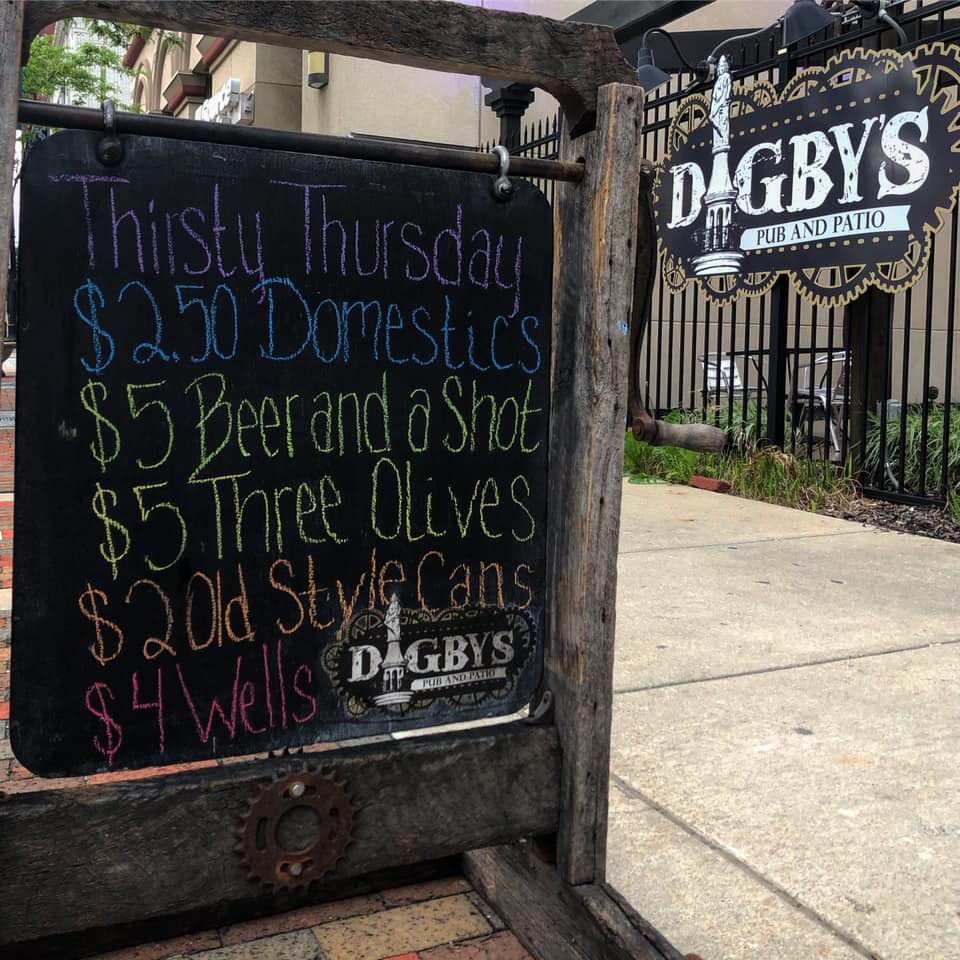 Thirsty Thursday
$2.50 Domestics
$5 Beer and a Shot
$5 Three Olives
$2 Old Style Cans
$4 Wells
DIGBY'S
PUB AND PATIO
DIGBY'S
PUB AND PATIO